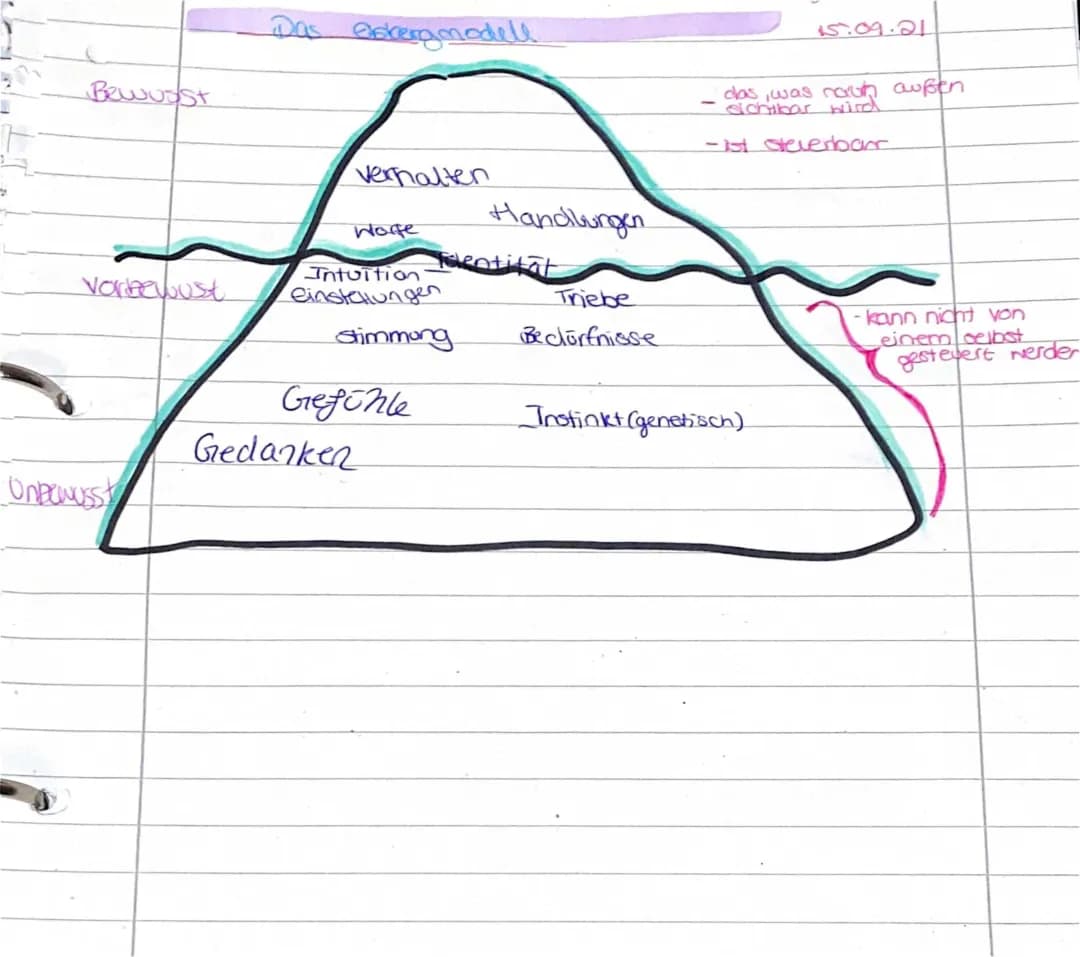 Das Eisbergmodell
15.09.21
Bewusst
- das, was nach außen
sichtbar wird
- ist steuerbar
Verhalten
Handlungen
Worte
Identität
Vorbewusst
Intuition
Einstellungen
Triebe
Stimmung
Bedürfnisse
- kann nicht von
einem selbst
gesteuert werden
Gefühle
Instinkt (genetisch)
Gedanken
Unbewusst